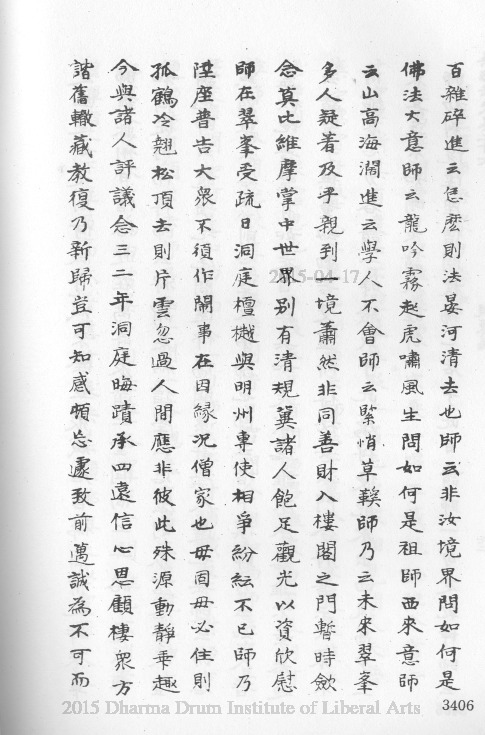 百雜碎進云恁麽則法晏河清去也師云非汝境界問如何是
佛法大意師云龍吟霧起虎嘯風生問如何是祖師西來意師
云山高海濶進云學人不會師云緊悄草鞵師乃云未來翠峯
多人疑着及乎親到一境蕭然非同善財入樓閣之門暫時斂
念莫比維摩掌中世界別有清規冀諸人飽足觀光以資欣慰
師在翠峯受疏日洞庭檀樾與明州專使相爭紛紜不已師乃
陞座普告大衆不須作鬧事在因緣況僧家也毋固毋必住則
孤鶴冷翹松頂去則片雲忽過人間應非彼此殊源動靜乖趣
今與諸人評議念三二年洞庭晦蹟承四遠信心恩顧棲衆方
諧舊轍藏教復乃新歸豈可知感頓忘遽致前邁誠為不可而
2015-04-17
2015 Dharma Drum Institute of Liberal Arts
3406